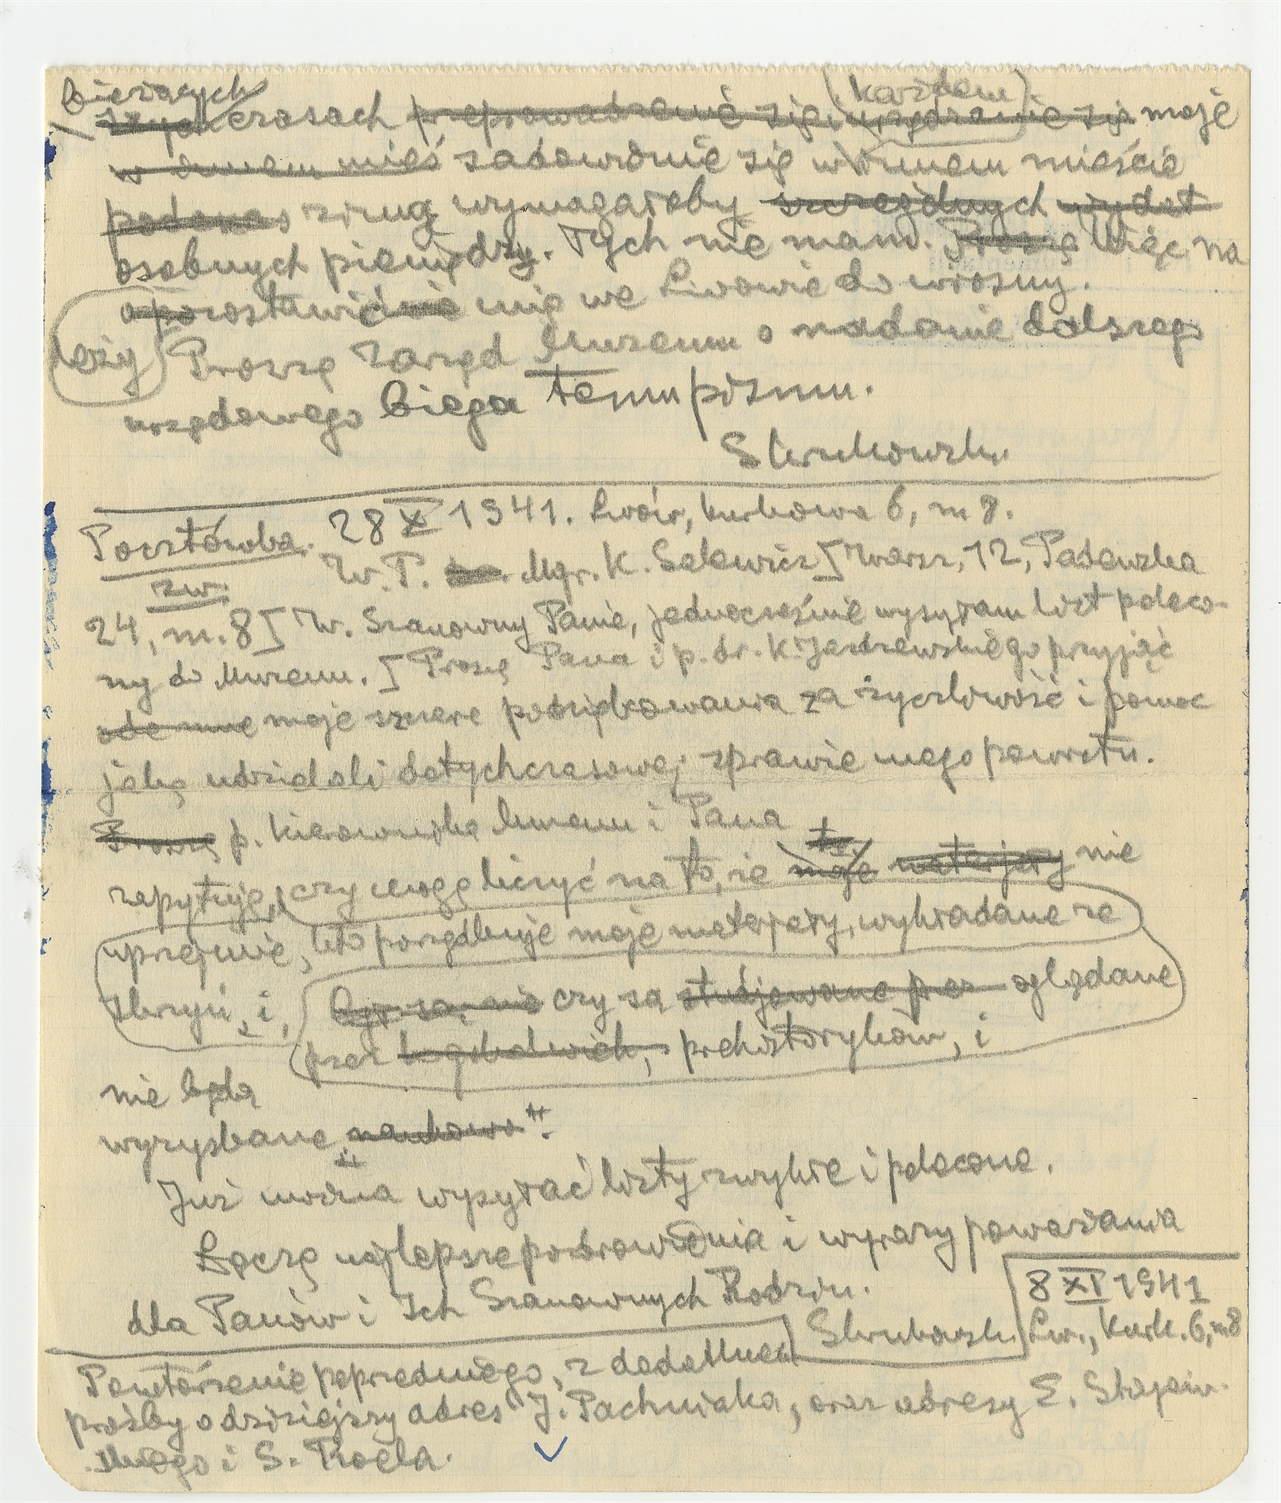 bieżących każdem
czasach przeprowadzenie się i urządzenie się moje
w innem mieś zadowolnię się w innem mieście
podczas zimy wymagałoby szczególnych wydat
osobnych pieniędzy. Tych nie mam. Proszę Więc na
pozostawić mię we Lwowie do wiosny.
leży Proszę Zarząd Muzeum o nadanie dalszego
urzędowego biega temu pismu.
SKrukowski.
Pocztówka. 28 X 1941. Lwów, Kurkowa 6, m 8.
zw.
W. P. Mgr. K. Salewicz [Warsz, 12, Padewska
24, m. 8] W. Szanowny Panie, jednocześnie wysyłam list poleco-
ny do Muzeum. [ Proszę Pana i p. dr. K. Jażdżewskiego przyjąć
ode mnie moje szczere podziękowania za życzliwość i pomoc
jaką udzielali dotychczasowej sprawie mego powrotu.
Proszę p. Kierownika Muzeum i Pana
zapytuję, czy mogę liczyć na to, że te moje materjały nie
uprzejmie, kto porządkuje moje materjały, wykładane ze
skrzyń, i, czy są studjowane przez oglądane
przez prehistoryków, i
nie będą
wyzyskane „naukowo".
Już można wysyłać listy zwykłe i polecone.
Łączę najlepsze pozdrowienia i wyrazy poważania
dla Panów i Ich Szanownych Rodzin.
SKrukowski
8 XI 1941
Lw., Kurk. 6, m 8
Powtórzenie poprzedniego, z dodatkiem
prośby o dzisiejszy adres J. Pachniaka, oraz adresy E. Stojanow-
skiego i S. Noela.